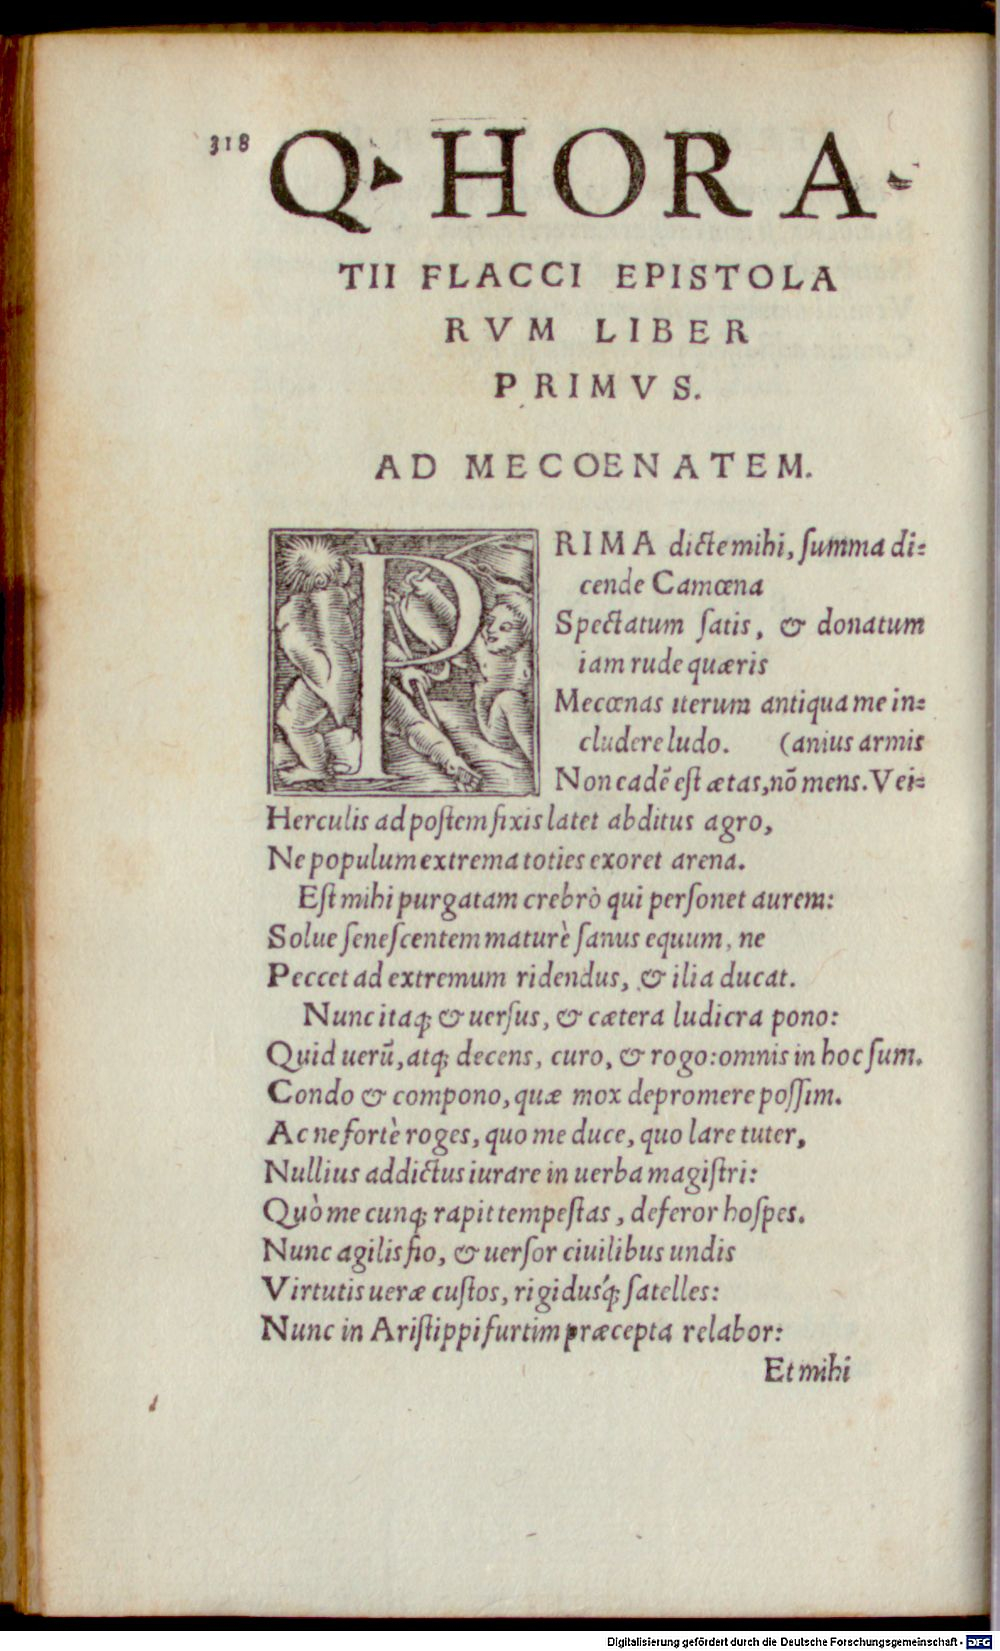 318
Q▸HORA-
TII FLACCI EPISTOLA
RVM LIBER
PRIMVS.
AD MECOENATEM.
PRIMA dicte mihi, ſumma di=
cende Camœna
Spectatum ſatis, & donatum
iam rude quæris
Mecœnas iterum antiqua me in=
cludere ludo. (anius armis
Non eadē eſt ætas, nō mens. Vei=
Herculis ad poſtem fixis latet abditus agro,
Ne populum extrema toties exoret arena.
Eſt mihi purgatam crebrò qui perſonet aurem:
Solue ſeneſcentem maturè ſanus equum, ne
Peccet ad extremum ridendus, & ilia ducat.
Nunc itaq; & uerſus, & cætera ludicra pono:
Quid uerū, atq; decens, curo, & rogo: omnis in hoc ſum.
Condo & compono, quæ mox depromere poſſim.
Ac ne fortè roges, quo me duce, quo lare tuter,
Nullius addictus iurare in uerba magiſtri:
Quò me cunq; rapit tempeſtas, deferor hoſpes.
Nunc agilis fio, & uerſor ciuilibus undis
Virtutis ueræ cuſtos, rigidusq́; ſatelles:
Nunc in Ariſtippi furtim præcepta relabor:
Et mihi
Digitalisierung gefördert durch die Deutsche Forschungsgemeinschaft - DFG